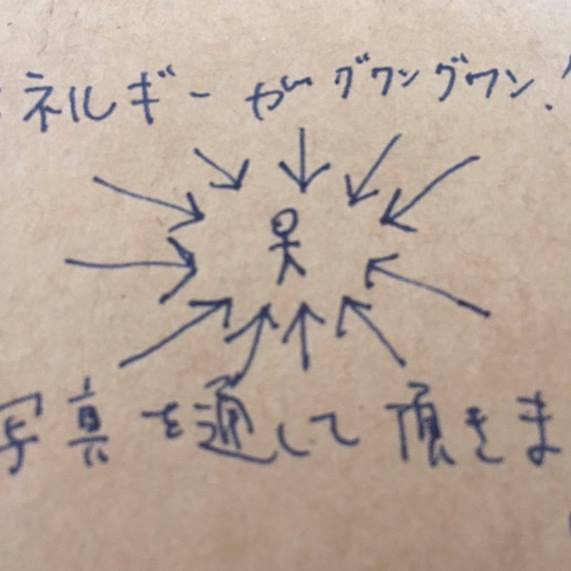 ネルギーがグワングワン!
写真を通して頂きま